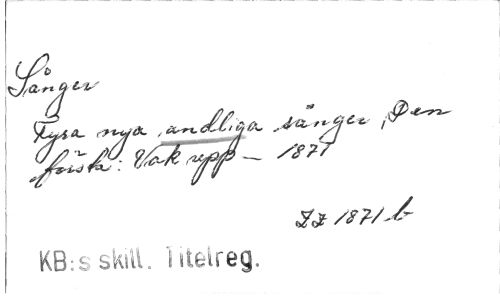 Sånger
Fyra nya andliga sånger, Den
första: Vak upp — 1871
ZZ 1871 b
KB:s skill. Titelreg.